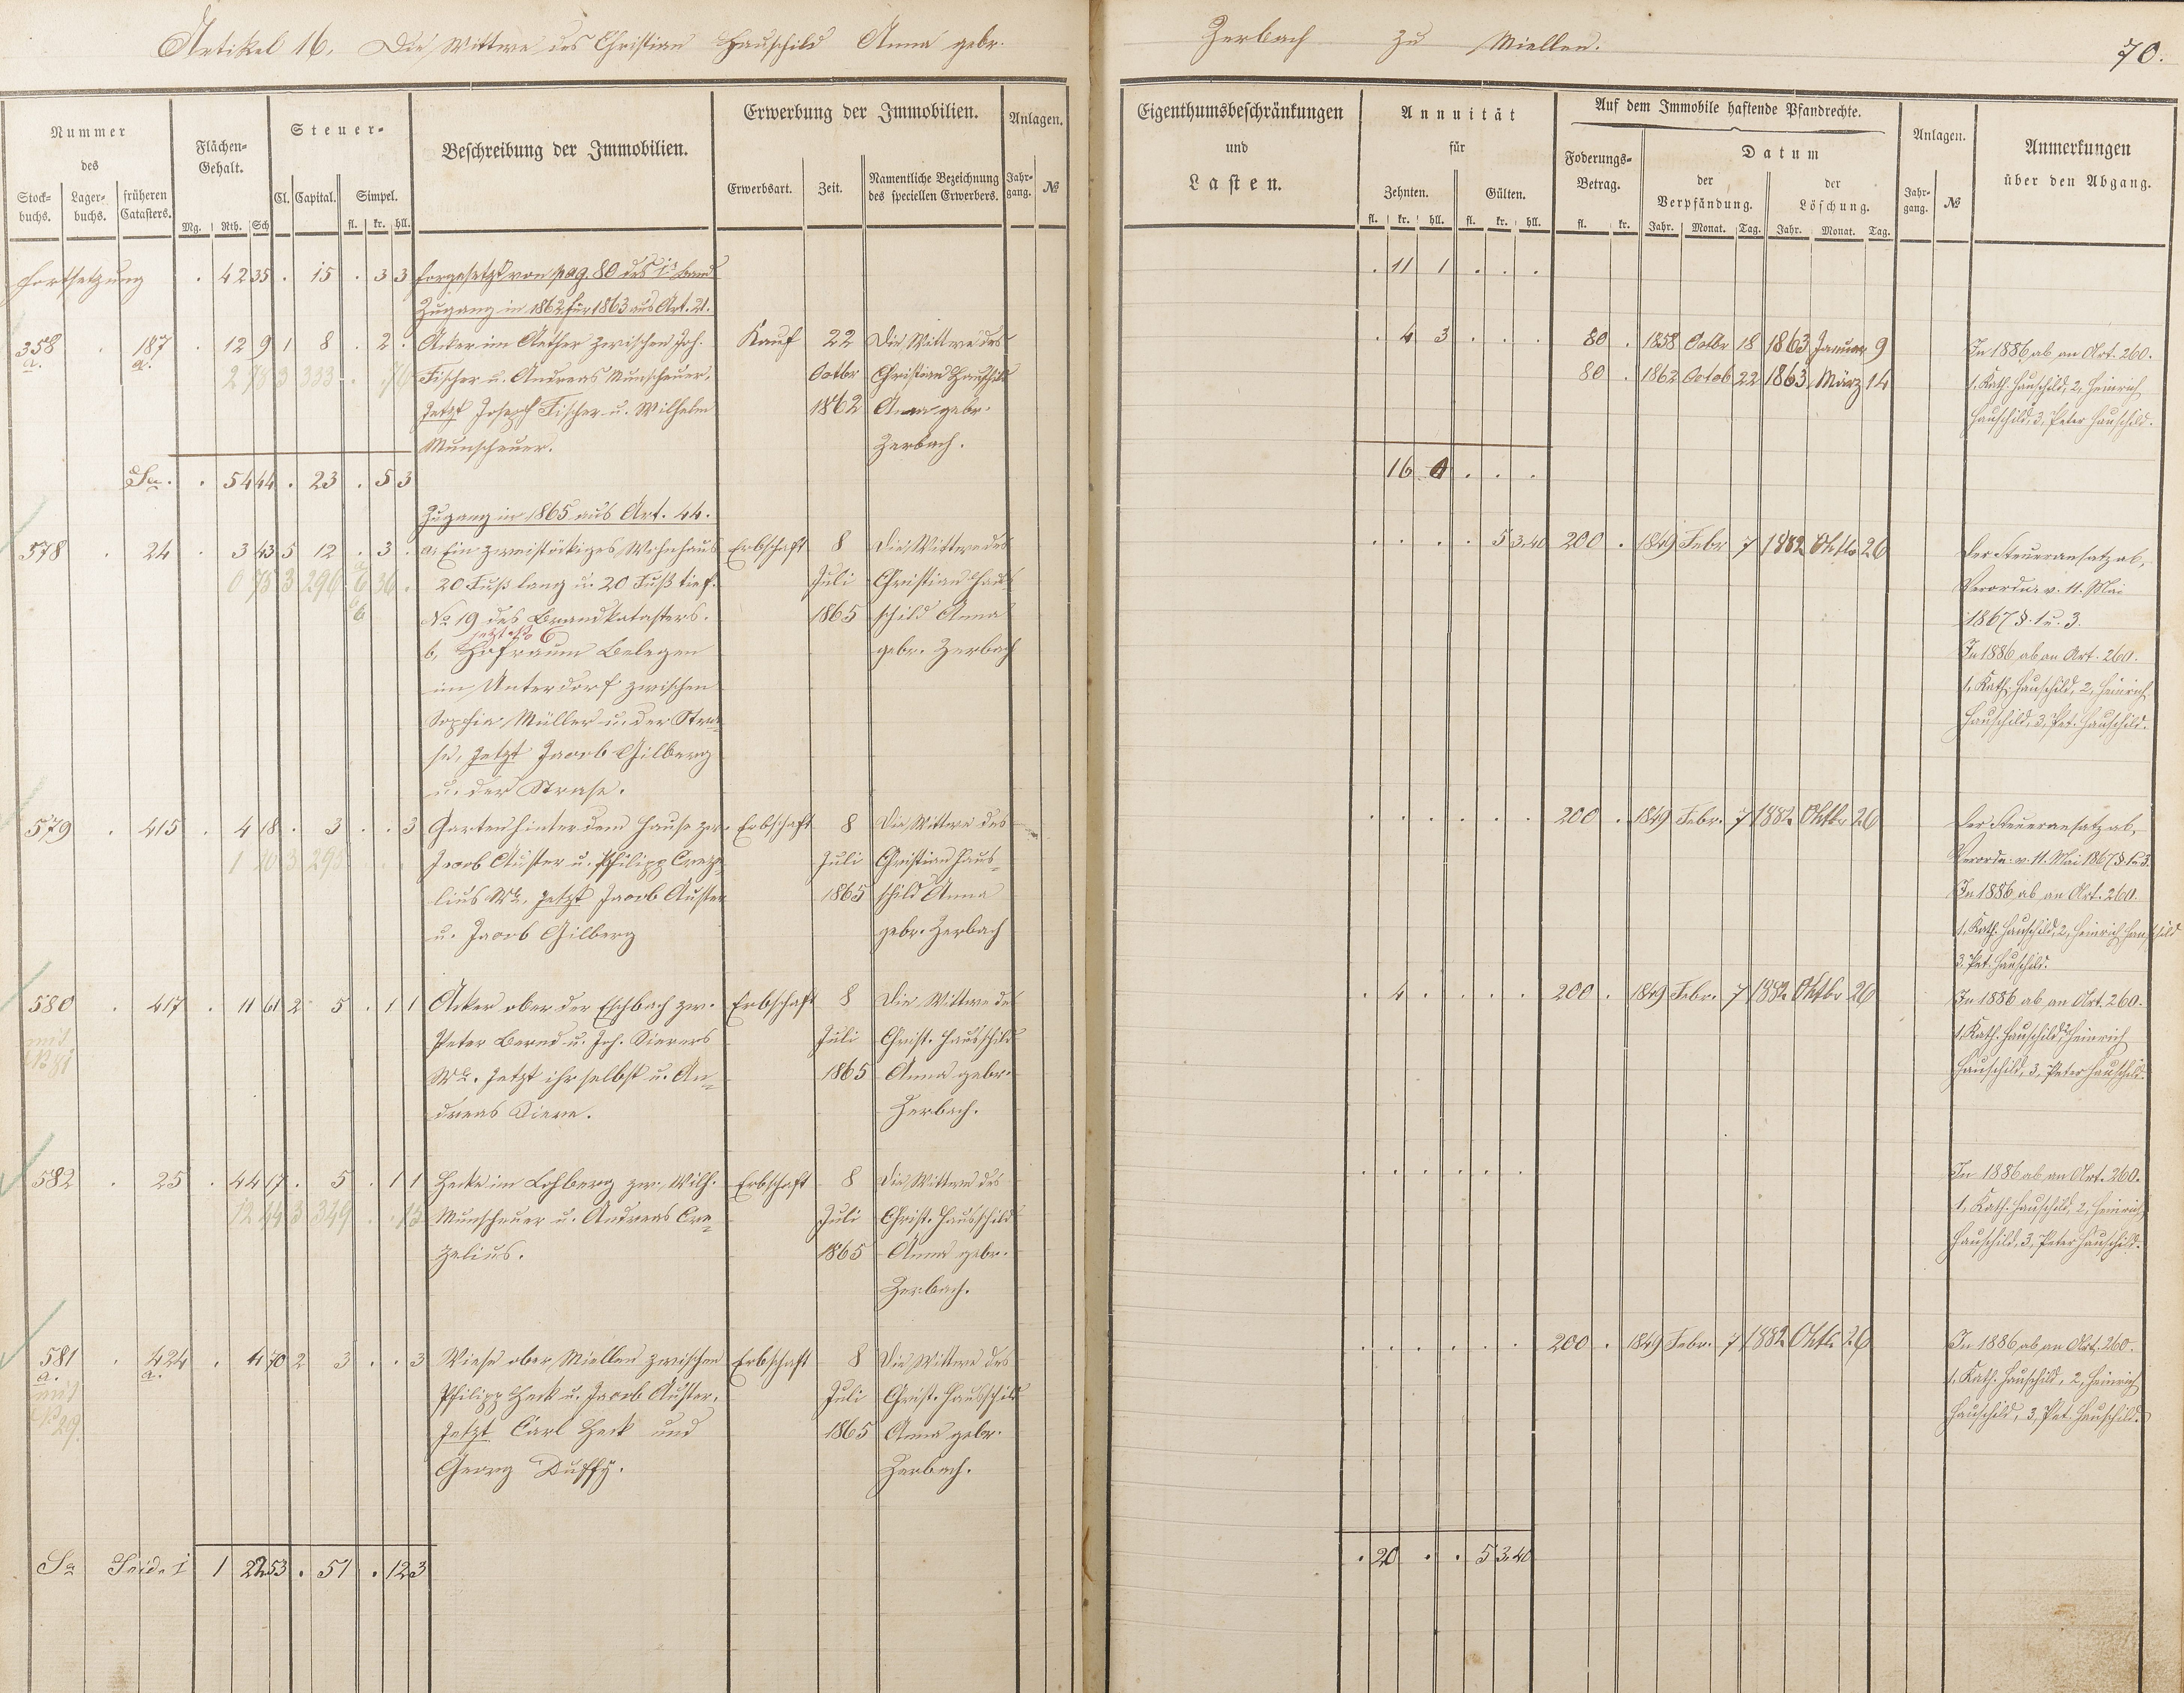 Artikel 16. Die Wittwe des Christian Hauschild Anna gebr. Zerbach zu Miellen. 70.
Nummer des
Stock-buchs. Lager-buchs. früheren Catasters.
Flächen-Gehalt.
Mg. Rth. Sch
Steuer-
Cl. Capital. Simpel.
fl. kr. hll.
Beschreibung der Immobilien.
Erwerbung der Immobilien.
Erwerbsart. Zeit. Namentliche Bezeichnung des speciellen Erwerbers.
Anlagen.
Jahr-gang. №
Eigenthumsbeschränkungen und Lasten.
Annuität für
Zehnten. Gülten.
fl. kr. hll. fl. kr. hll.
Auf dem Immobile haftende Pfandrechte.
Foderungs-Betrag.
fl. kr.
Datum
der Verpfändung. der Löschung.
Jahr. Monat. Tag. Jahr. Monat. Tag.
Anlagen.
Jahr-gang. №
Anmerkungen über den Abgang.
Fortsetzung . 42 35 . 15 . 3 3 Forgesetzt von pag. 80 des Ir Band . 11 1 . . .
Zugang in 1862 für 1863 aus Art. 21.
358 . 187 . 12 9 1 8 . 2 . Acker im Aether zwischen Joh. Kauf 22 Die Wittwe des . 4 3 . . . 80 . 1858 Octbr 18 1863 Januar 9 In 1886 ab an Art. 260.
a. a. 3 333 Fischer u. Andreas Munscheuer, Octbr Christian Hauschild 80 . 1862 Octob 22 1863 März 14 1, Kath. Hauschild, 2, Heinrich
Jetzt Joseph Fischer u. Wilhelm 1862 Anna gebr. Hauschild, 3, Peter Hauschild.
Munscheuer. Zerbach.
Sa. . 54 44 . 23 . 5 3 16 0 . . .
Zugang in 1865 aus Art. 44.
578 . 24 . 3 43 5 12 . 3 . a, Ein zweistöckiges Wohnhaus Erbschaft 8 Die Wittwe des . . . . 53 40 200 . 1849 Febr 7 1882 Oktbr 26 Der Steueransatz ab,
0 78 3 296 6 36 . 20 Fuß lang u. 20 Fuß tief. Juli Christian Hau- Verordn. v. 11. Mai
6 № 19 des Brandkatasters. 1865 schild Anna 1867 §. 1 u. 3.
jetzt № 6
b, Hofraum Belegen gebr. Zerbach In 1886 ab an Art. 260.
im Unterdorf zwischen 1, Kath. Hauschild, 2, Heinrich
Sophia Müller u. der Stra- Hauschild, 3, Pet. Hauschild.
se, Jetzt Jacob Gilberg
u. der Strase.
579 . 415 . 4 18 . 3 . . 3 Garten hinter dem Hause zw. Erbschaft 8 Die Wittwe des . . . . . . 200 . 1849 Febr. 7 1882 Oktbr 26 Der Steueransatz ab,
Jacob Auster u. Philipp Creze- Juli Christian Haus- Verordn. v. 11. Mai 1867 §. 1 u. 3.
lius Wt. Jetzt Jacob Auster 1865 schild Anna In 1886 ab an Art. 260.
u. Jacob Gilberg gebr. Zerbach 1, Kath. Hauschild, 2, Heinrich Hauschild
3. Pet. Hauschild.
580 . 417 . 11 61 2 5 . 1 1 Acker ober der Eschbach zw. Erbschaft 8 Die Wittwe des . 4 . . . . 200 . 1849 Febr. 7 1882 Oktbr 26 In 1886 ab an Art. 260.
mit Peter Bernd u. Joh. Juli Christ. Hausschild 1, Kath. Hauschild, 2, Heinrich
Wt. Jetzt ihr selbst u. An- 1865 Anna gebr. Hauschild, 3, Peter Hauschild.
dreas Zerbach.
582 . 25 . 44 17 . 5 . 1 1 Hecke im Lohberg zw. Wilh. Erbschaft 8 Die Wittwe des . . . . . . In 1886 ab an Art. 260.
12 44 3 349 Munscheuer u. Andreas Cre- Juli Christ. Hausschild 1, Kath. Hauschild, 2, Heinrich
zelius. 1865 Anna gebr. Hauschild, 3, Peter Hauschild.
Zerbach.
581 . 424 . 4 70 2 3 . . 3 Wiese ober Miellen zwischen Erbschaft 8 Die Wittwe des . . . . . . 200 . 1849 Febr. 7 1882 Oktbr 26 In 1886 ab an Art. 260.
a. a. Philipp Heck u. Jacob Auster, Juli Christ. Hausschild 1, Kath. Hauschild, 2, Heinrich
mit Jetzt Carl Heck und 1865 Anna gebr. Hauschild, 3, Pet. Hauschild.
Georg Duffy. Zerbach.
Sa Seide I 1 22 53 . 51 . 12 3 . 20 . . 53 40